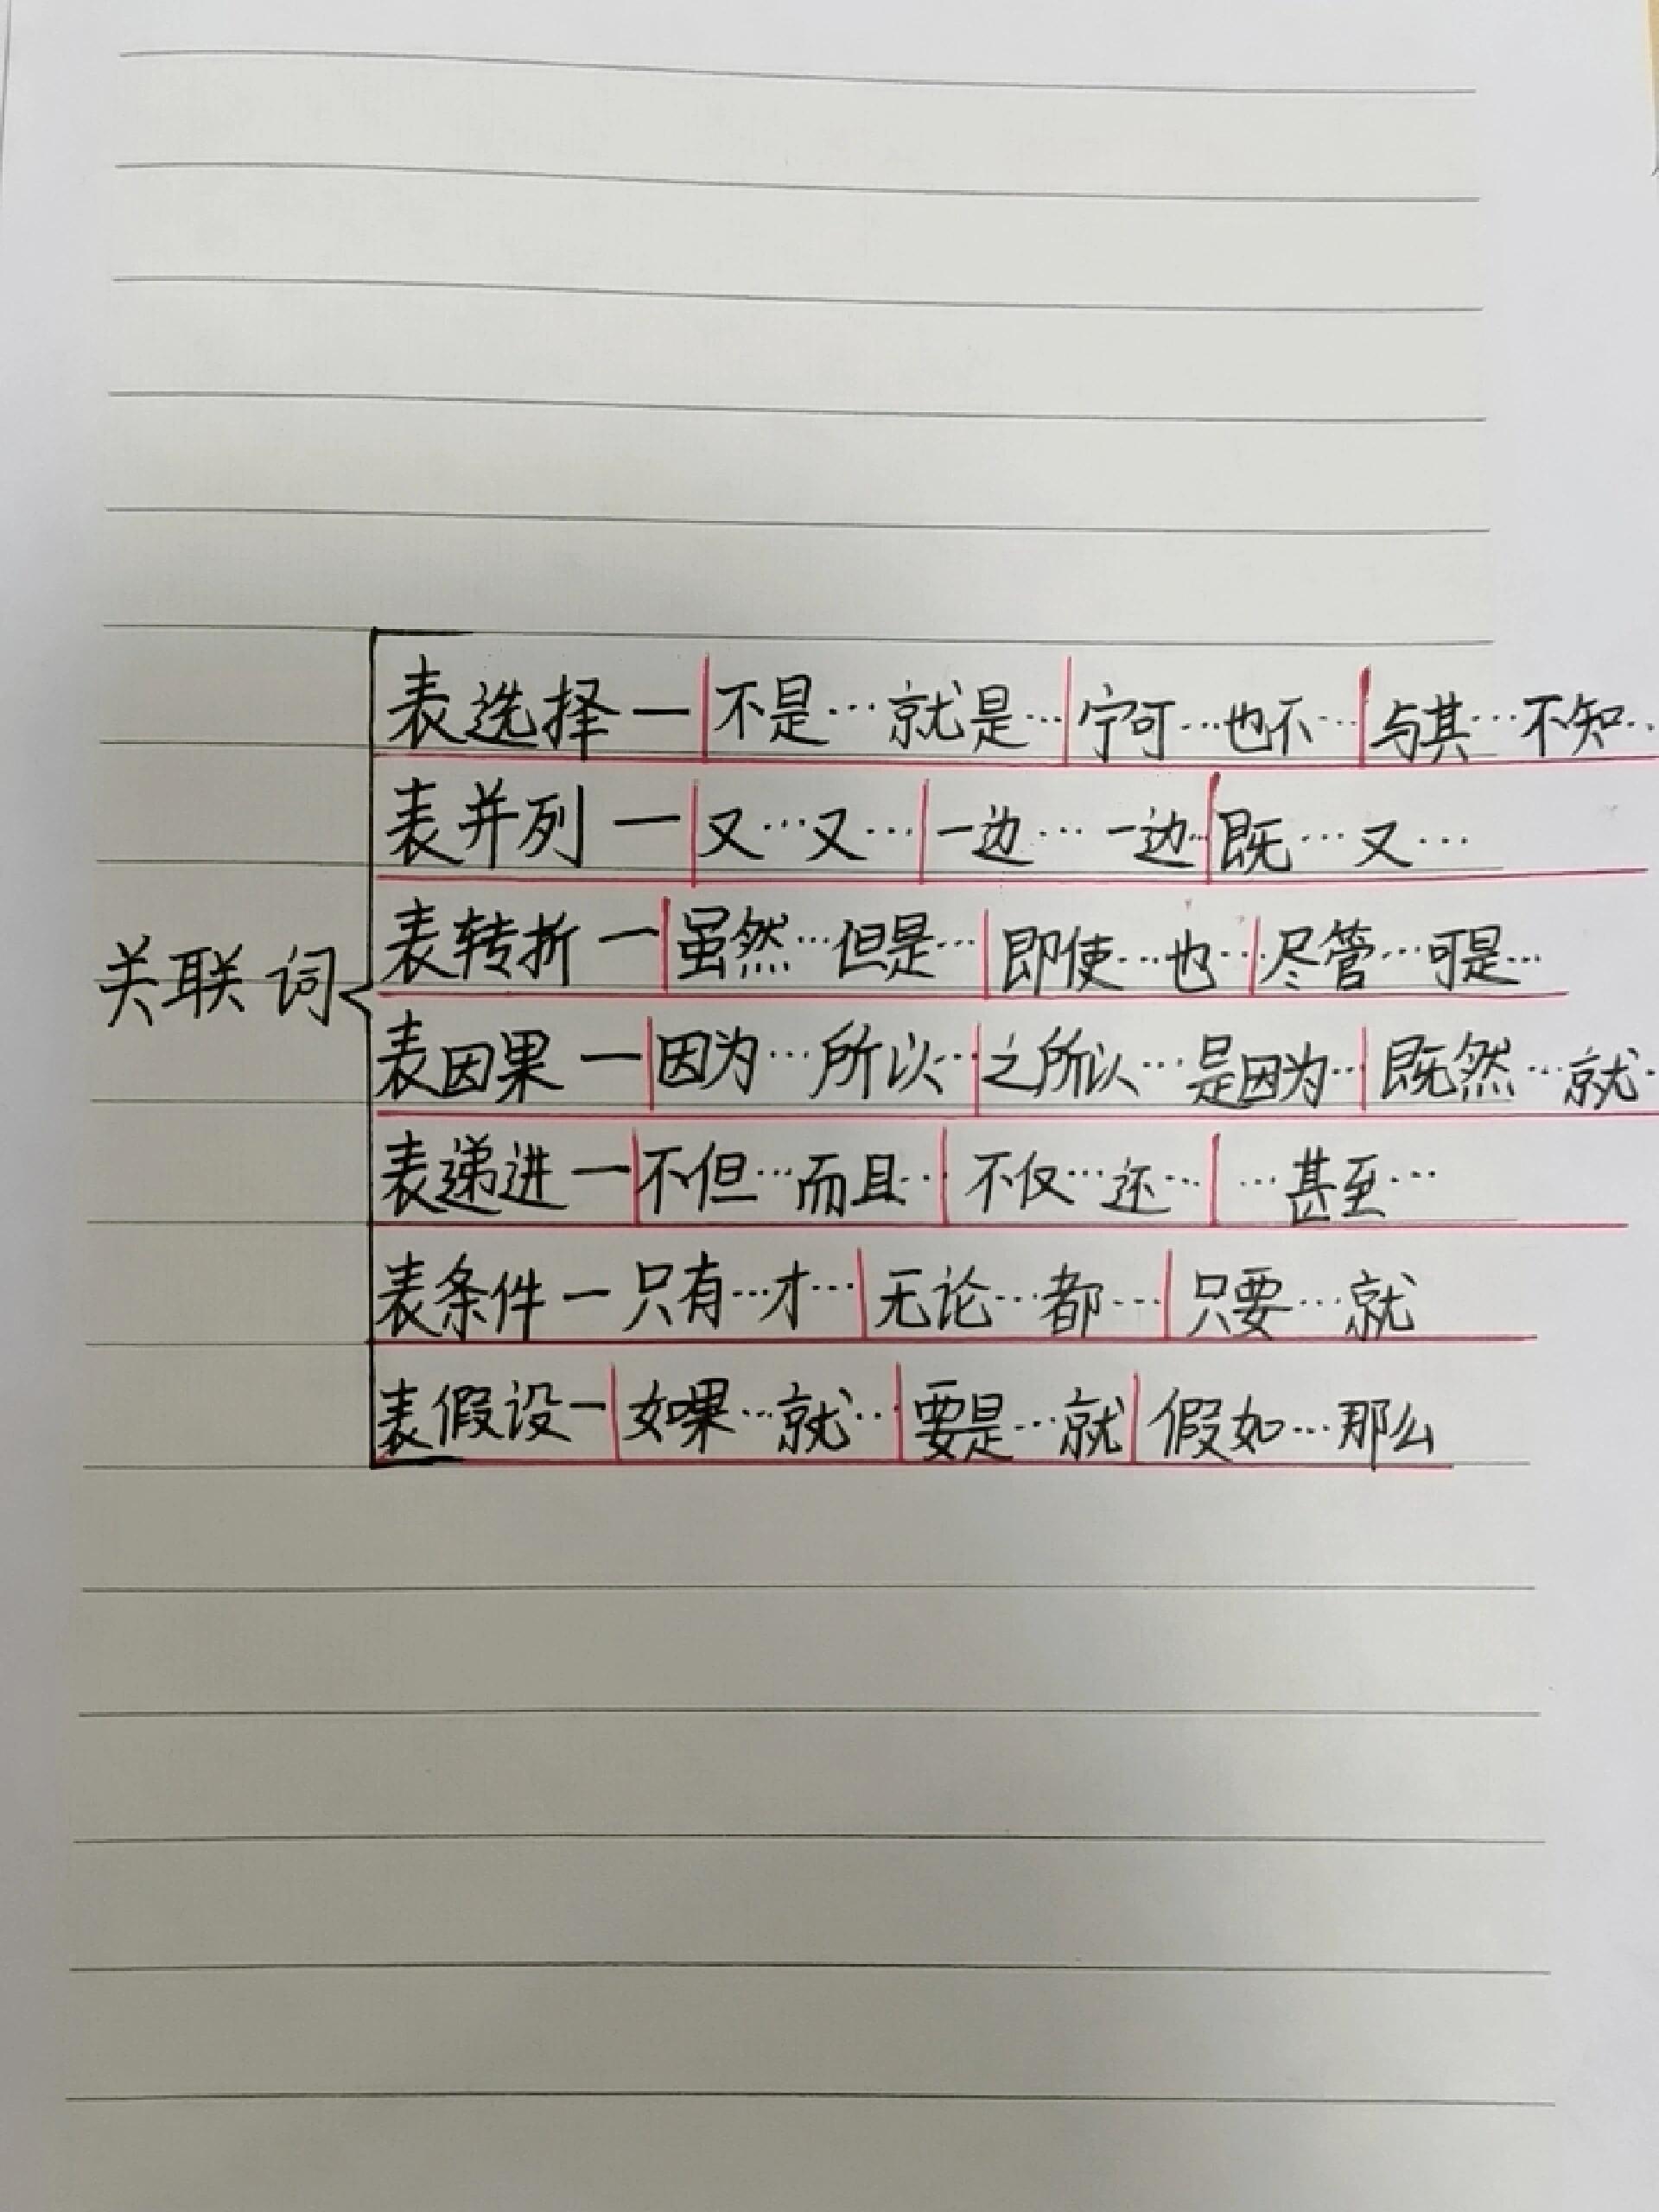 关联词
表选择—不是…就是…宁可…也不…与其…不知…
表并列—又…又…一边…一边…既…又…
表转折—虽然…但是…即使…也…尽管…可是…
表因果—因为…所以…之所以…是因为…既然…就…
表递进—不但…而且…不仅…还……甚至…
表条件—只有…才…无论…都…只要…就
表假设—如果…就…要是…就假如…那么